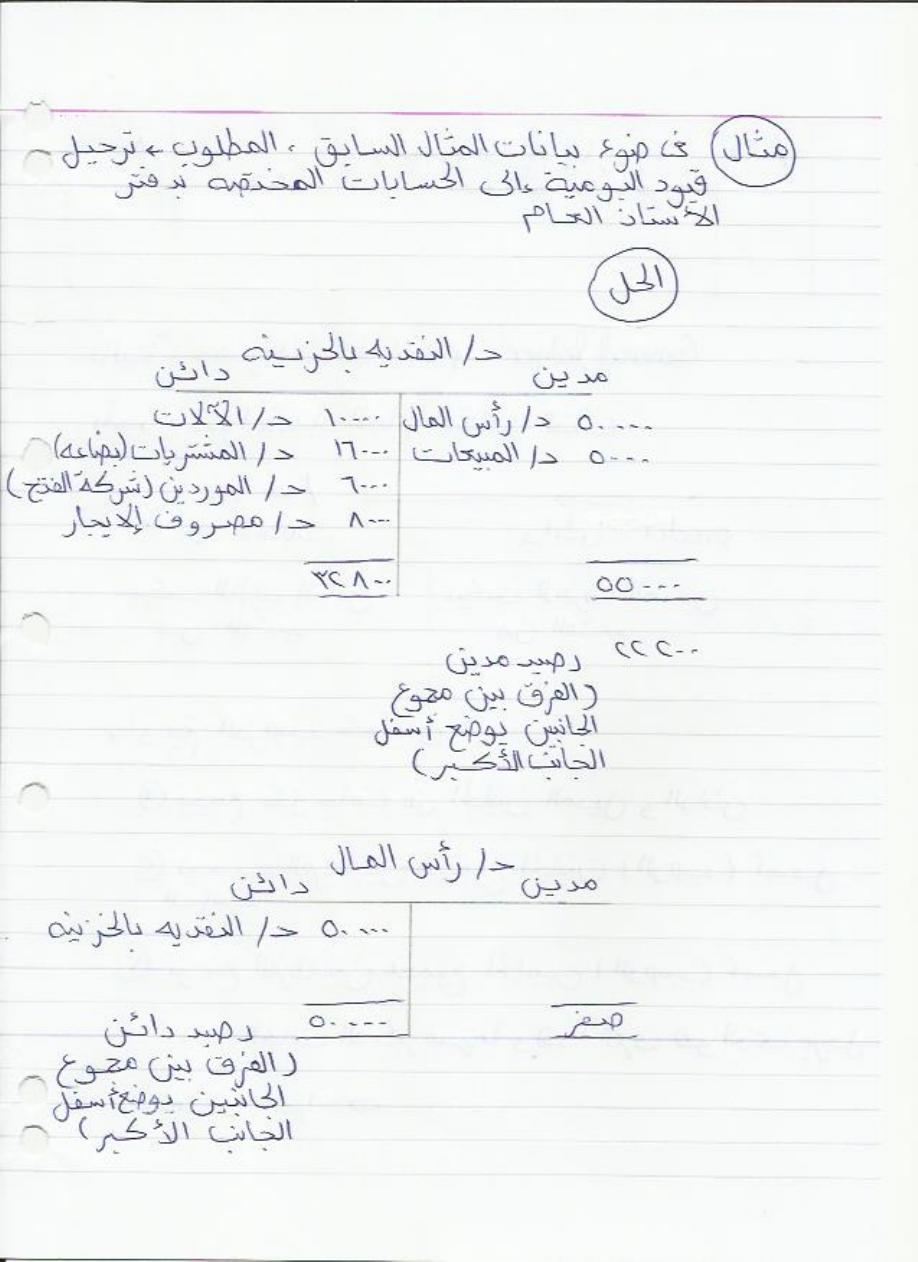 مثال في ضوء بيانات المثال السابق ، المطلوب ← ترحيل
قيود اليومية إلى الحسابات المختصه بدفتر
الأستاذ العام
الحل
حـ/ النقديه بالخزينه
مدين دائن
٥٠٠٠٠ حـ/ رأس المال ١٠٠٠٠ حـ/ الآلات
٥٠٠٠ حـ/ المبيعات ١٦٠٠٠ حـ/ المشتريات (بضاعه)
٦٠٠٠ حـ/ الموردين (شركة الفتح)
٨٠٠ حـ/ مصروف الايجار
٥٥٠٠٠ ٣٢٨٠٠
٢٢٢٠٠ رصيد مدين
(الفرق بين مجموع
الجانبين يوضع أسفل
الجانب الأكبر)
حـ/ رأس المال
مدين دائن
٥٠٠٠٠ حـ/ النقديه بالخزينه
صفر ٥٠٠٠٠ رصيد دائن
(الفرق بين مجموع
الجانبين يوضع أسفل
الجانب الأكبر)